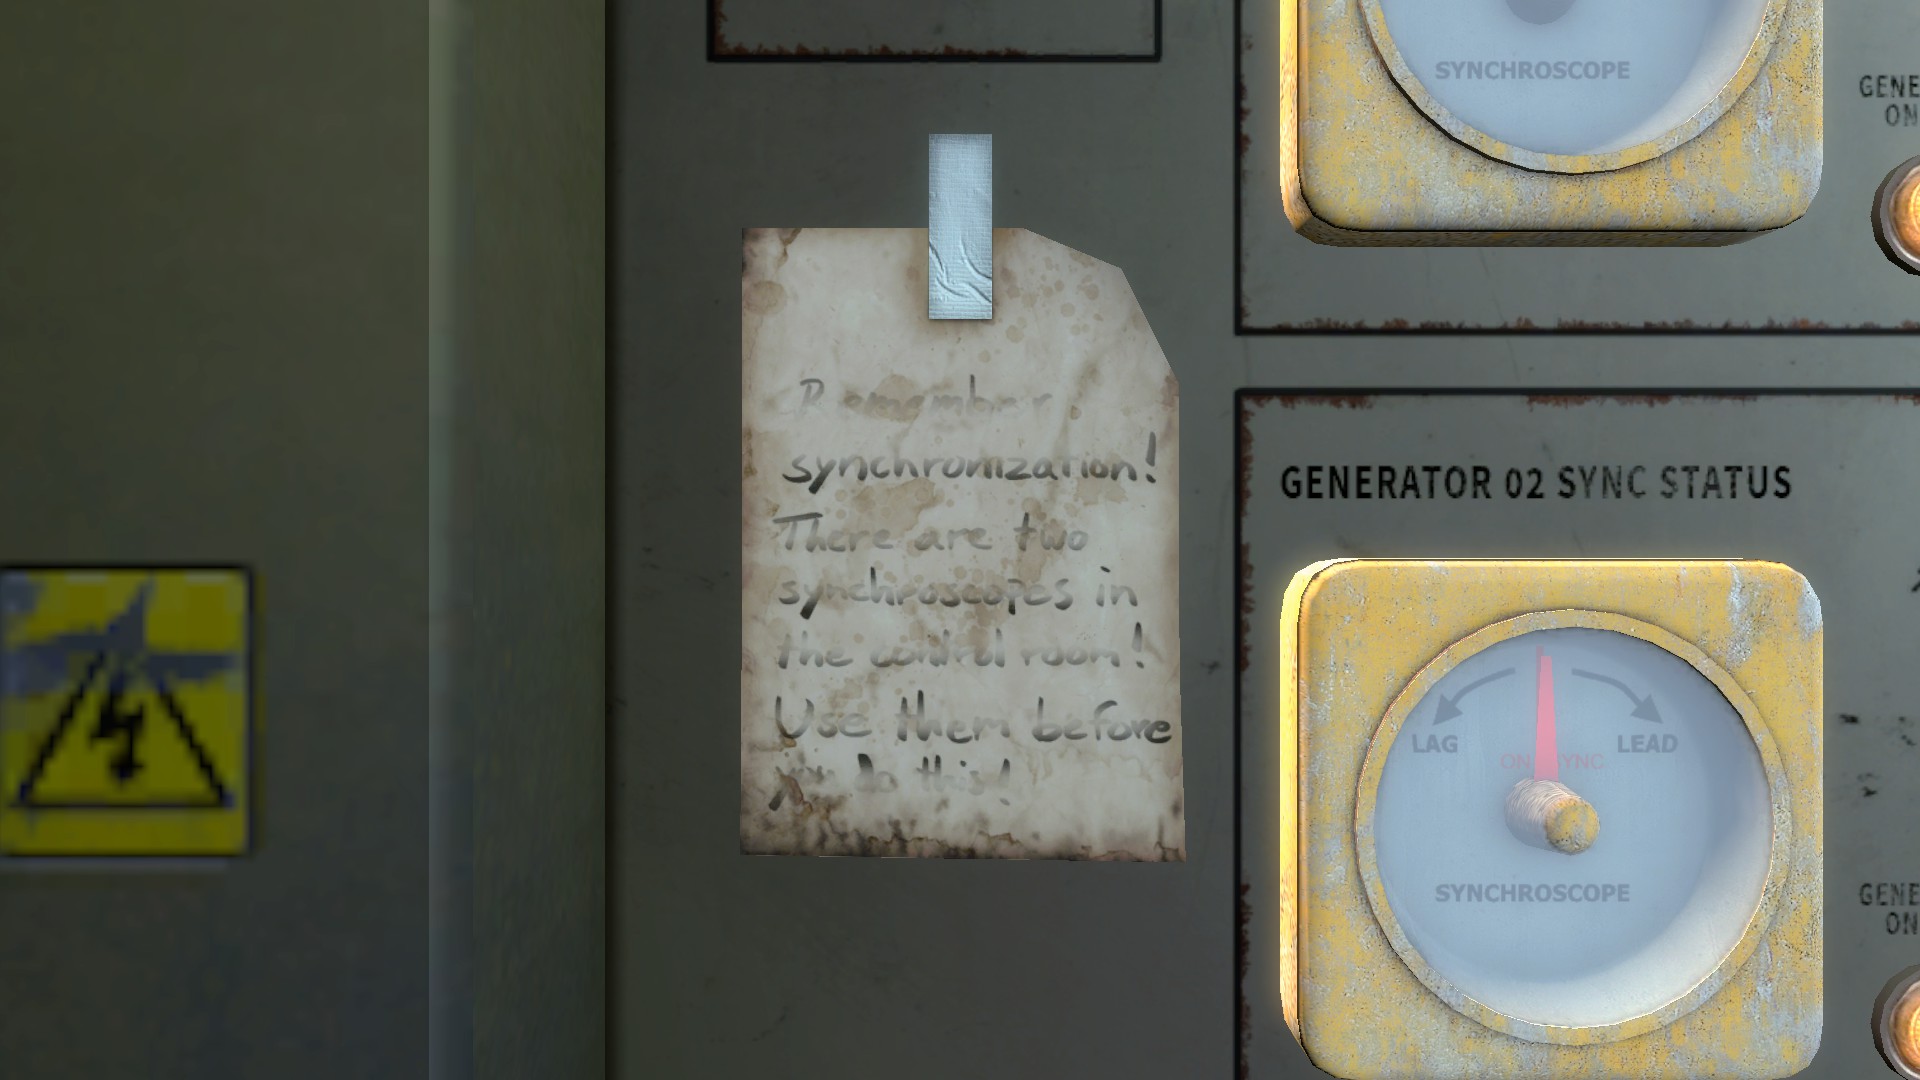 SYNCHROSCOPE
GENE
ON
Remember
synchronization!
There are two
synchroscopes in
the control room!
Use them before
you do this!
GENERATOR 02 SYNC STATUS
LAG
LEAD
ON SYNC
SYNCHROSCOPE
GENE
ON